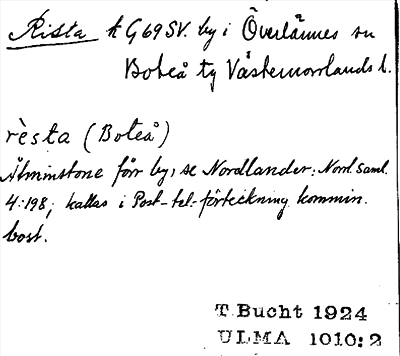 Rista k G69SV. by i Överlännes sn
Boteå tg Västernorrlands l.
rèsta (Boteå)
Åtminstone förr by, se Nordlander: Norrl. saml.
4:198; kallas i Post-tel.-förteckning kommin.
bost.
T.Bucht 1924
ULMA 1010:2